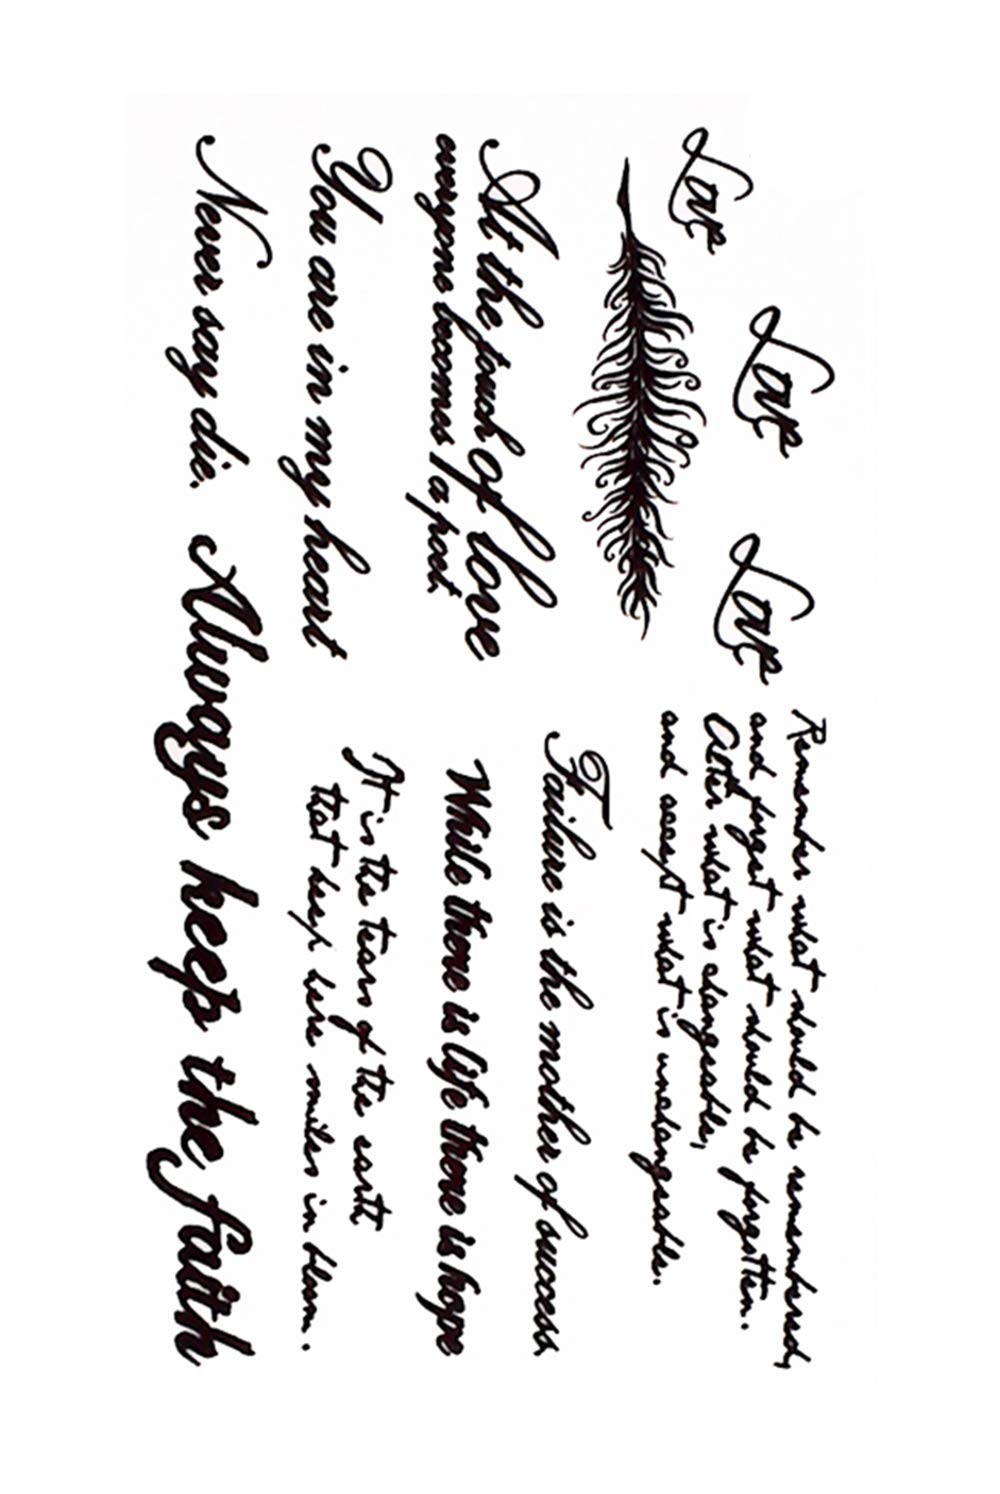 Love
Love
Love
Remember what should be remembered,
and forget what should be forgotten.
Alter what is changeable,
and accept what is unchangeable.
At the touch of love
everyone becomes a poet.
Failure is the mother of success
While there is life there is hope
You are in my heart
It is the tears of the earth
that keep here smiles in bloom.
Never say die.
Always keep the faith